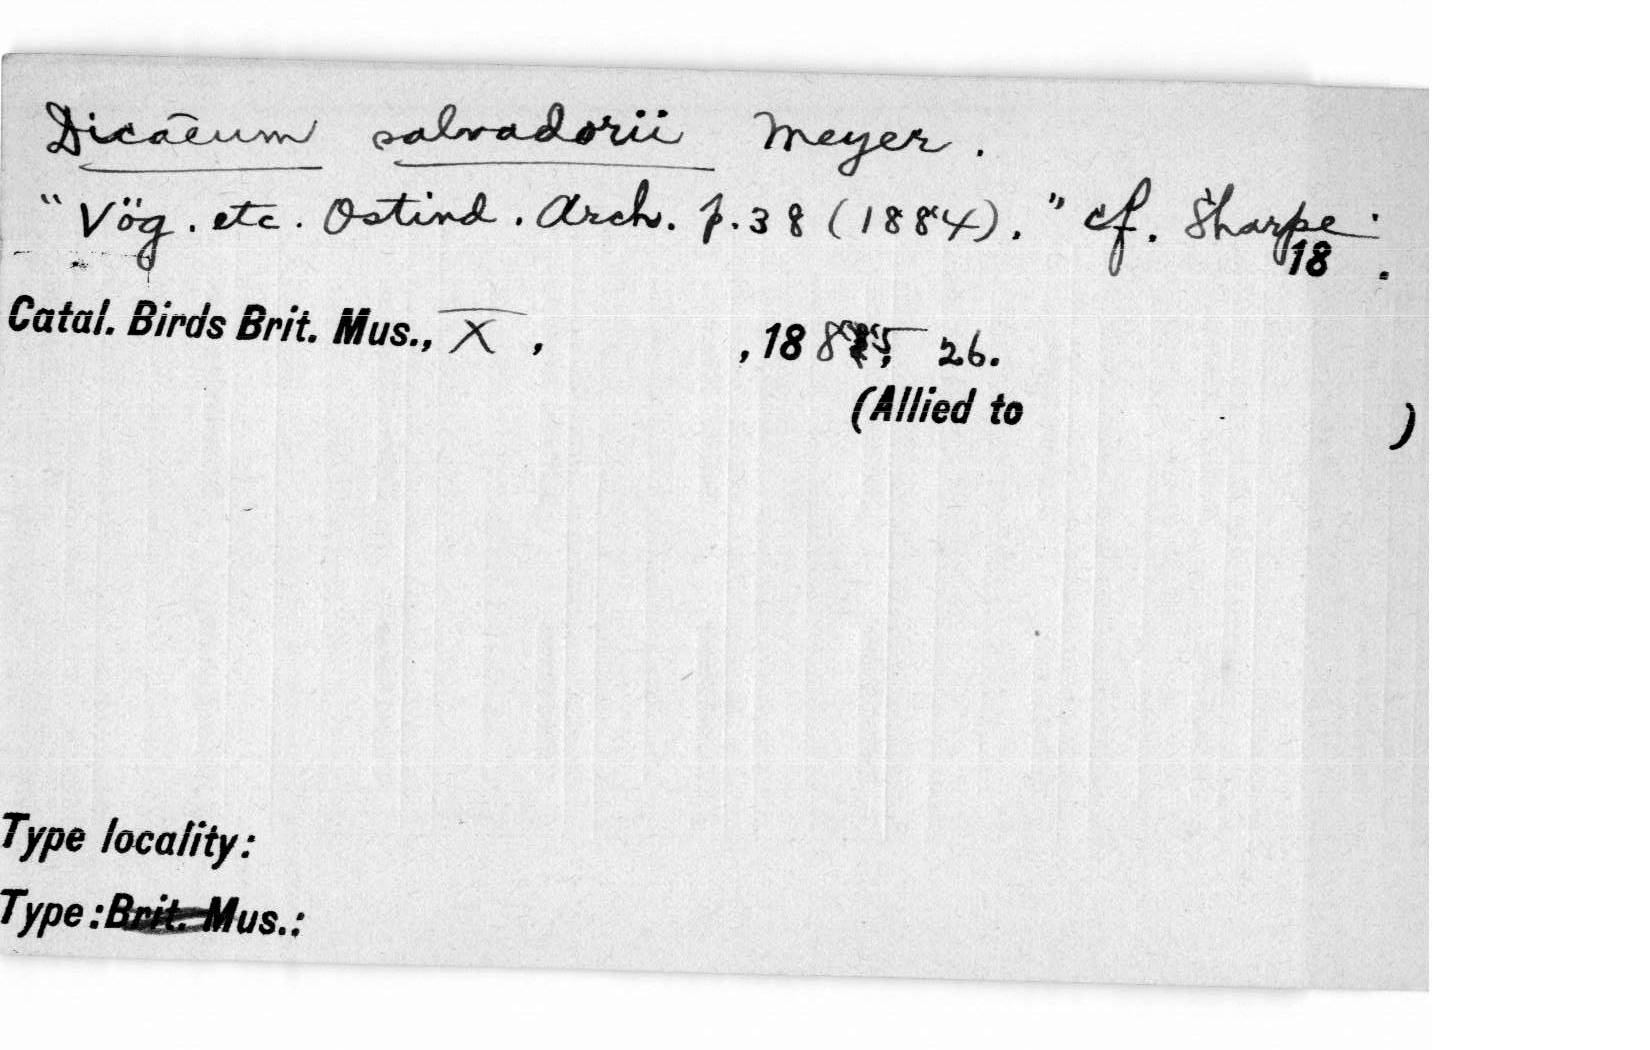 Dicaeum salvadorii Meyer.
"Vög. etc. Ostind. Arch. p. 38 (1884)." cf. Sharpe.
18 .
Catal. Birds Brit. Mus., X, , 1885, 26.
(Allied to )
Type locality:
Type: Brit. Mus.: